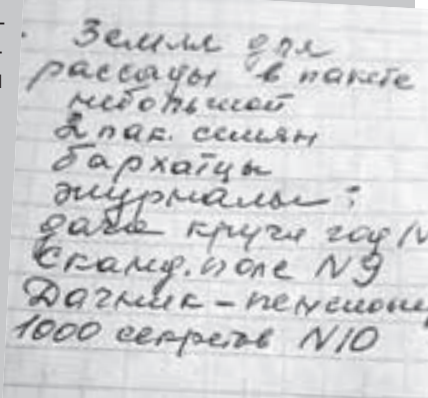 Земля для
рассады в пакете
небольшой
2 пак. семян
бархатцы
журналы:
дача кругл год
Сканд. поле N9
Дачник-пенсионер
1000 секретов N10